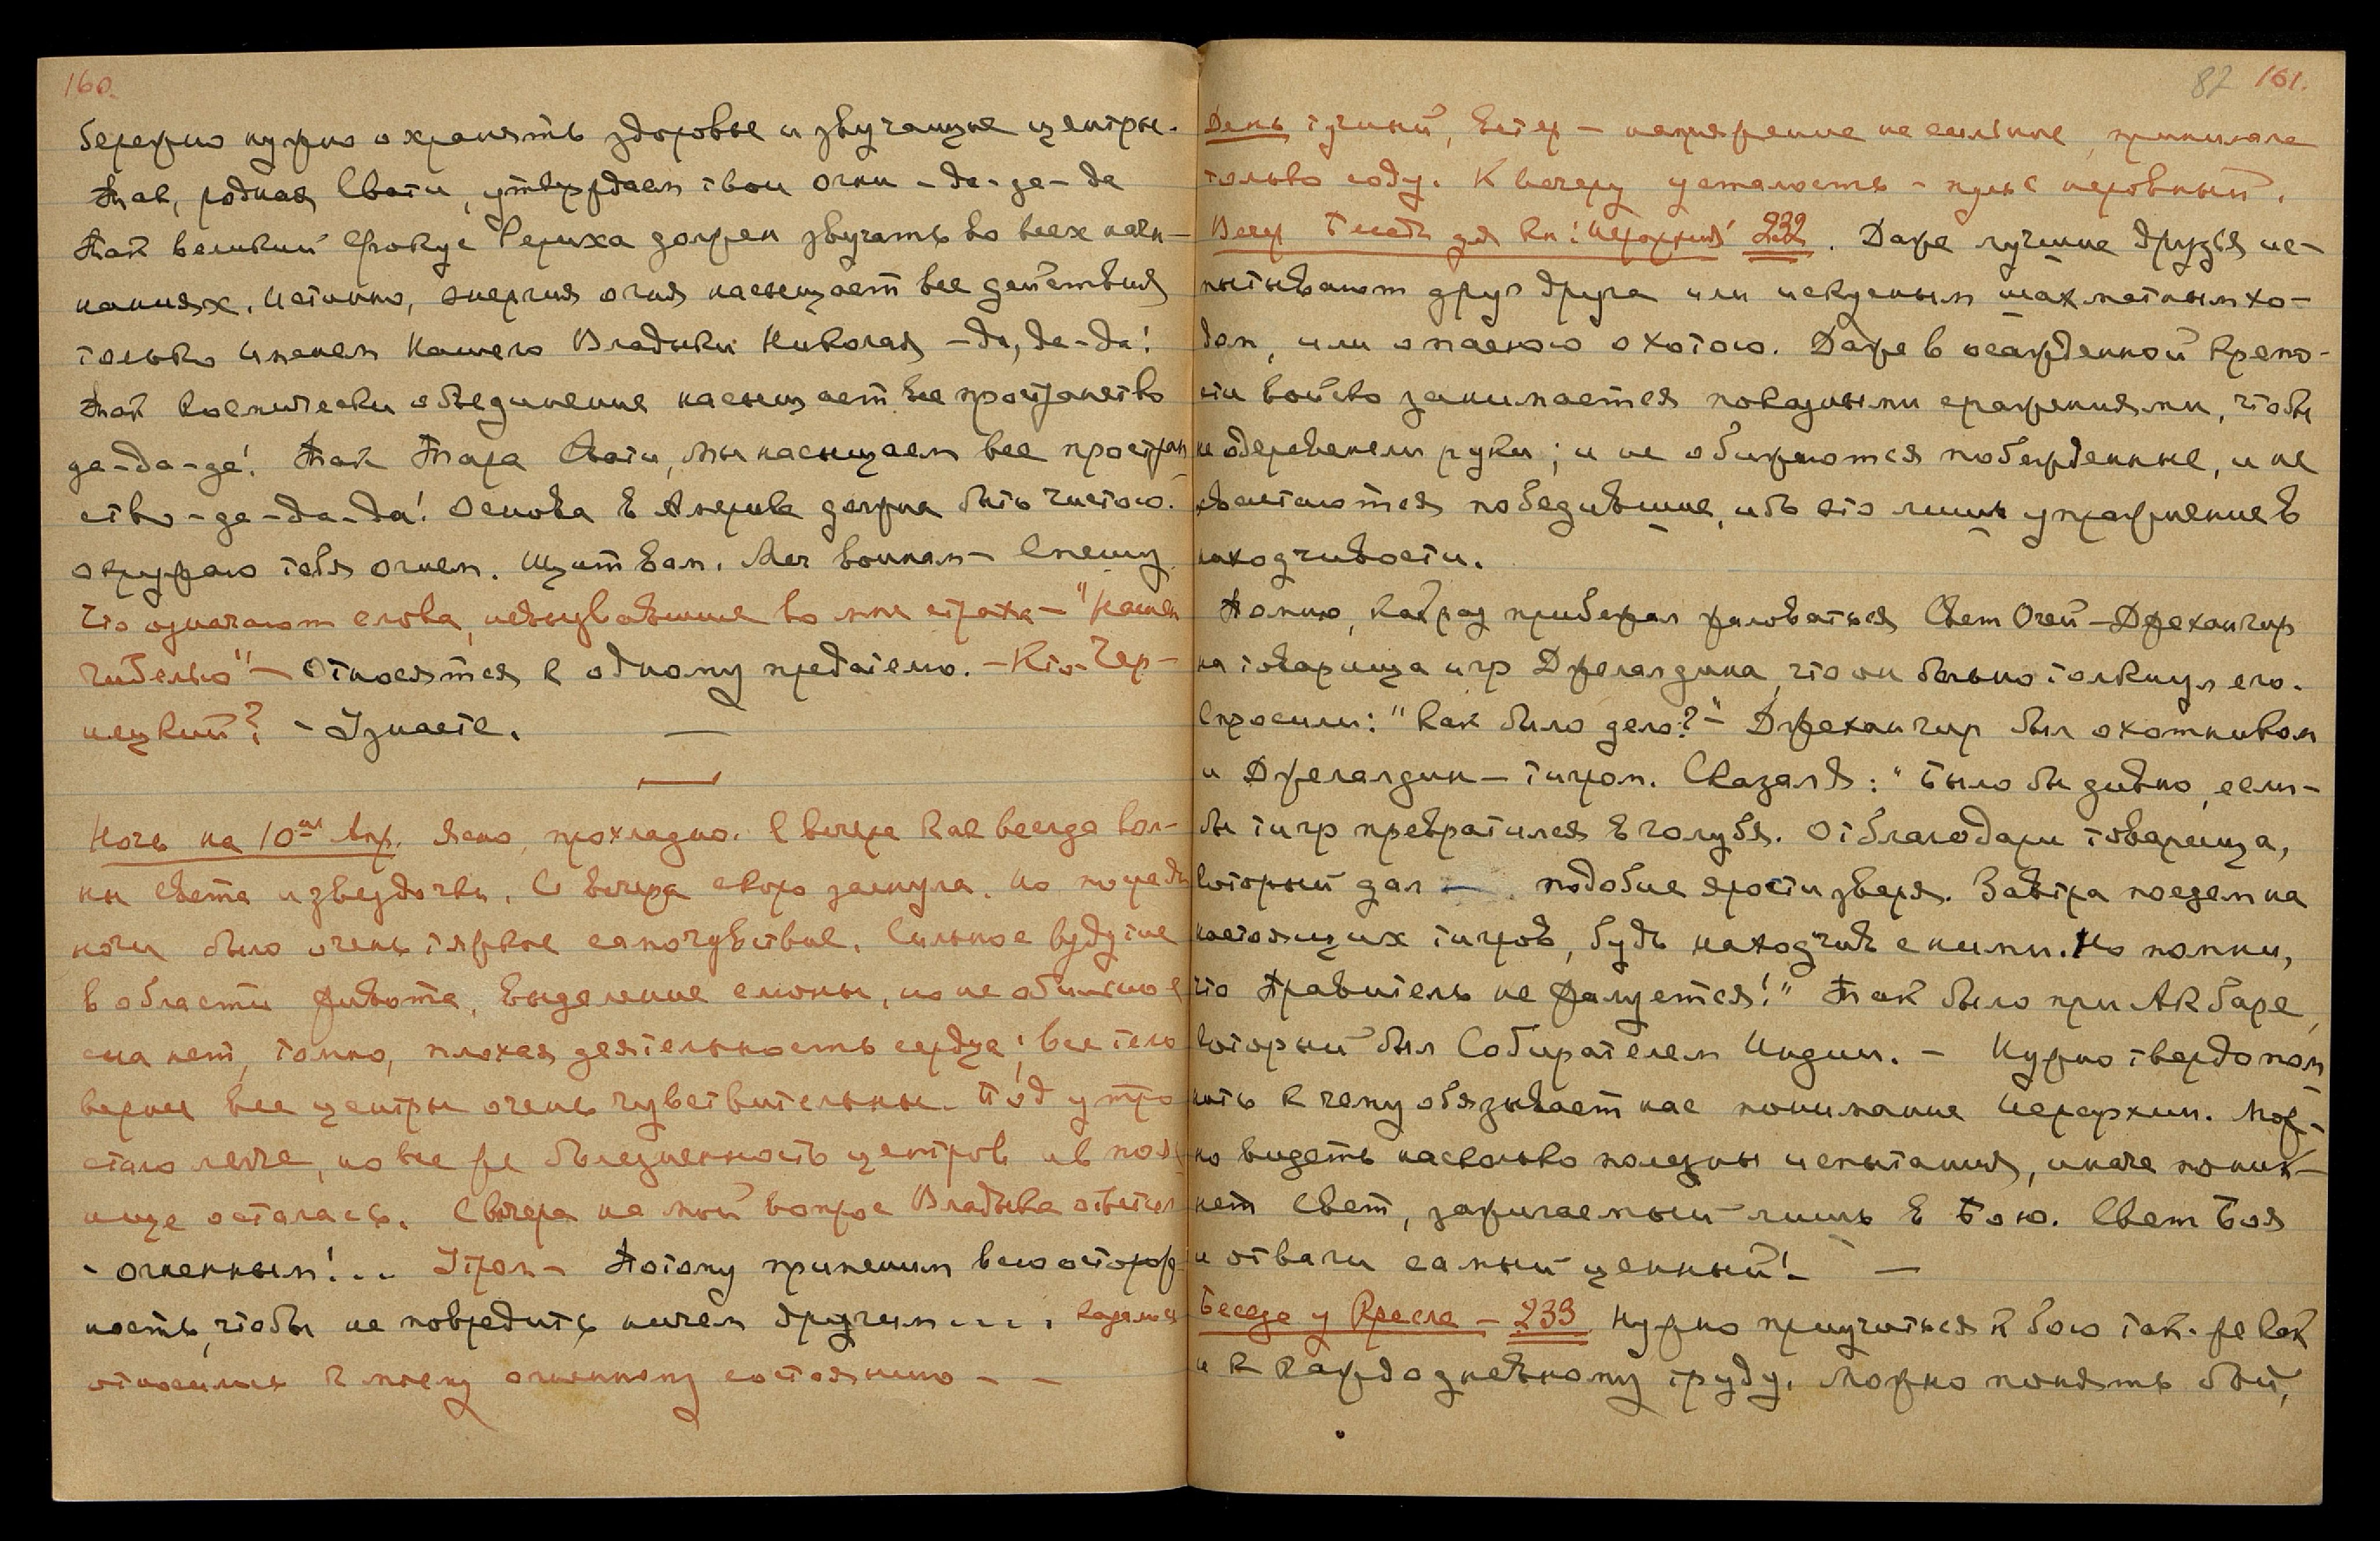 160.
бережно нужно охранять здоровье и звучащие центры.
Так, родная Свати, утверждаем твои огни – да – да – да
Так великий фокус Рериха должен звучать во всех начи-
наниях. Истинно, энергия огня насыщает все действия
только именем Нашего Владыки Николая – да, да – да!
Так космически объединение насыщает все пространство
да – да – да! Так Тара Свати, Мы насыщаем все простран
ство – да – да – да! Основа в Америке должна быть чистою.
окружаю тебя огнем. Щит вам. Меч воинам – Спешу
Что означают слова, вызвавшие во мне страх – "
гибелью" – Относятся к одному предателю. – Кто Чер-
нецкий? – Узнаете. —
Ночь на 10ое Апр. Ясно, прохладно. С вечера как всегда вол-
ны света и звездочки. С вечера скоро заснула. Но посреди
ночи было очень тяжкое самочувствие. Сильное вздутие
в области живота, выделение слюны, но не обильное
сна нет, томно, плохая деятельность сердца; все тело
вернее все центры очень чувствительны. Под утро
стало легче, но все же болезненность центров и в пояс
нице осталась. С вечера на мой вопрос Владыка ответил
– огненным!.. Утром – Потому применим всю осторож
ность, чтобы не повредить ничем другим.... Кажется
относились к моему огненному состоянию – –
82 161.
День тучный, ветер – напряжение не сильное, принимала
только соду. К вечеру усталость – пульс неровный.
Вечер Беседа для Кн: Иерархия! 232. Даже лучшие друзья ис-
пытывают друг друга или искусным шахматным хо-
дом, или опасною охотою. Даже в осажденной крепо-
сти войско занимается показными сражениями, чтобы
не одеревенели руки; и не обижаются побежденные, и не
хвастаются победившие, ибо это лишь упражнение в
находчивости.
Помню, как раз прибежал жаловаться Свет Очей – Джехангир
на товарища игр Джелалдина, что он больно толкнул его.
Спросили: "Как было дело?" – Джехангир был охотником
и Джелалдин – тигром. Сказал Я: "Было бы дивно, если-
бы тигр превратился в голубя. Отблагодари товарища,
который дал – подобие ярости зверя. Завтра поедем на
настоящих тигров, будь находчив с ними. Но помни,
что Правитель не жалуется!" Так было при Акбаре,
который был Собирателем Индии. – Нужно твердо пом
нить к чему обязывает нас понимание Иерархии. Мож-
но видеть насколько полезны испытания, иначе поник-
нет Свет, зажигаемый лишь в Бою. Свет Боя
и отваги самый ценный! – —
Беседа у Кресла – 233 Нужно приучиться к бою так-же как
и к каждодневному труду. Можно понять бой,